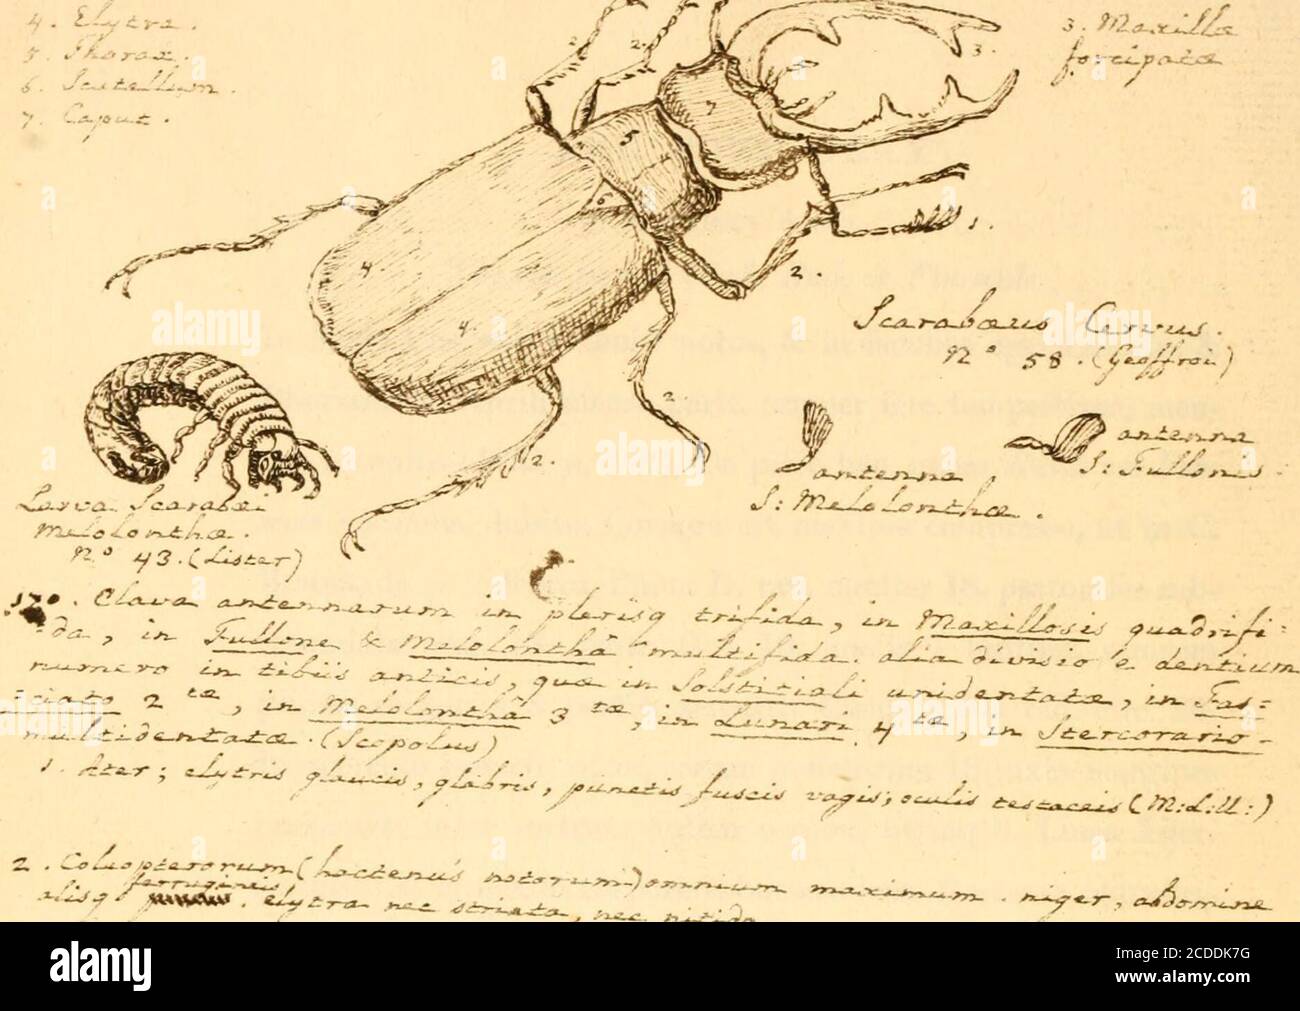 4. Elytra.
5. Thorax.
6. Scutellum.
7. Caput.
3. Maxillæ
forcipatæ
2. 2. 3. 7 5 6 1. 2. 4. 4. 2 2.
Scarabæus Cervus.
N° 58. (Geoffroi)
antenna
S: Fullonis.
antenna
S: Melolonthæ.
Larva Scarabæi
Melolonthæ.
N° 43. (Lister)
170. Clava antennarum in plerisq trifida, in Maxillosis quadrifi=
=da, in Fullone & Melolonthâ multifida. alia divisio e dentium
numero in tibiis anticis, quæ in Solstitiali unidentatæ, in Fas=
=ciato 2 tæ, in Melolonthâ 3 tæ, in Lunari 4 tæ, in Stercorario -
multidentatæ. (Scopolus)
1. Ater; elytris glaucis, glabris, punctis fuscis vagis; oculis testaceis (M:L:U:)
2. Coleopterorum (hactenus notorum) omnium maximum. niger, abdomine
alisq ferrugineis. elytra nec striata, nec nitida
alamy
Image ID: 2CDDK7G
www.alamy.com